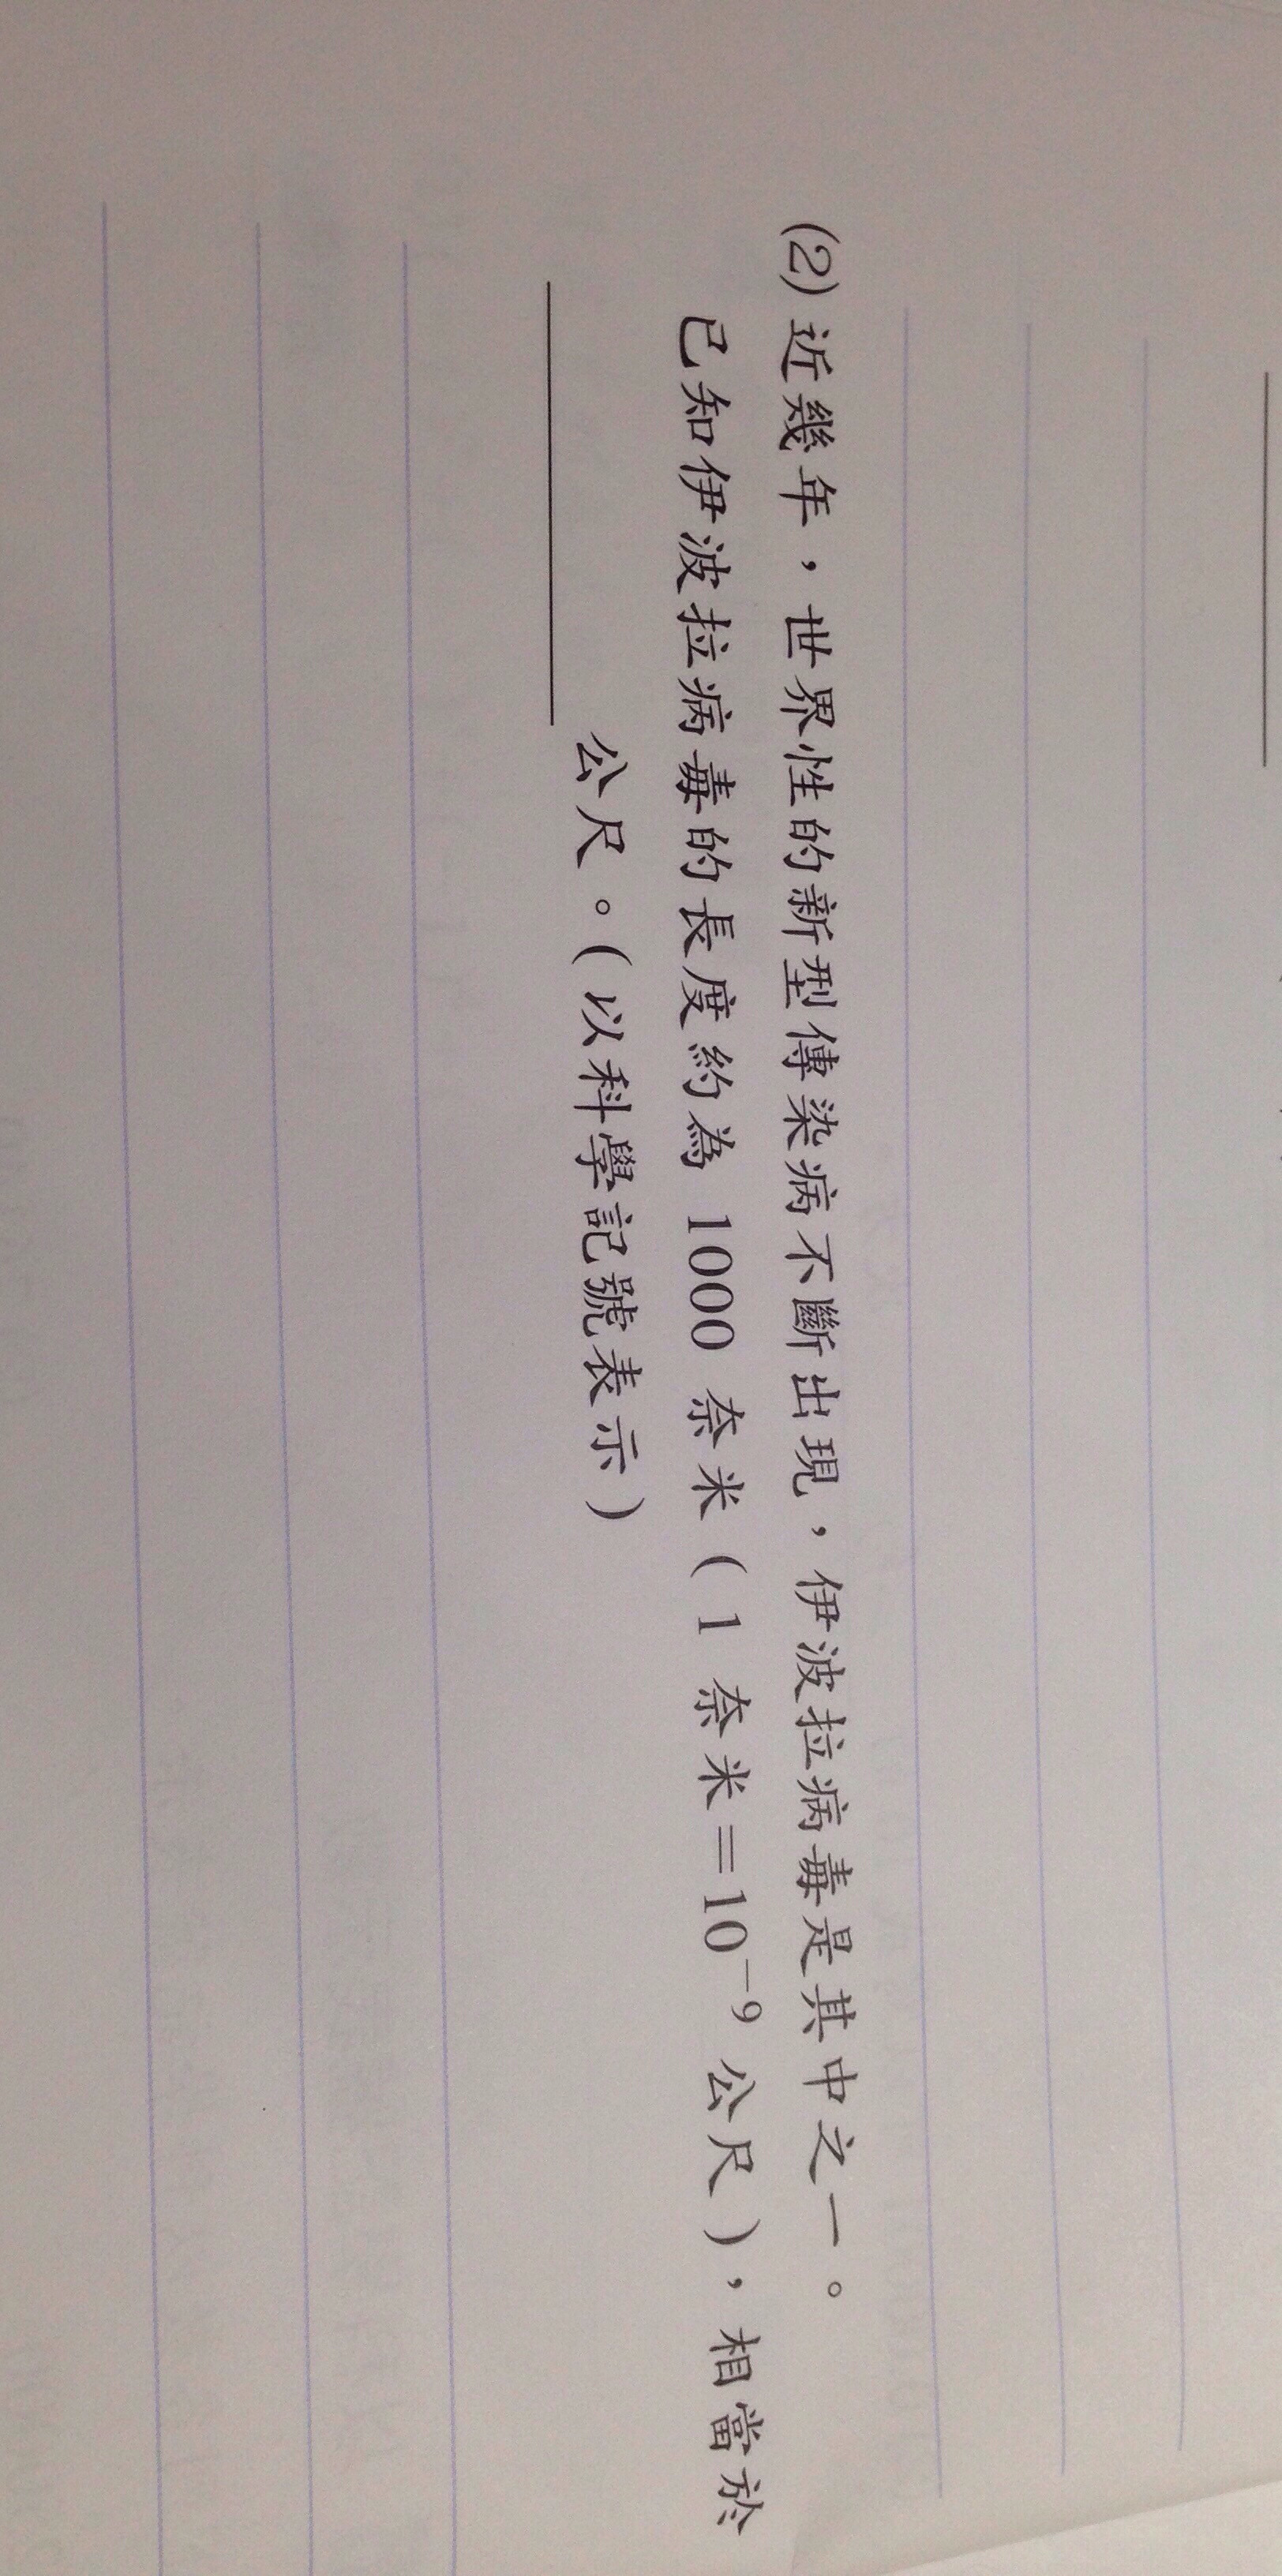 (2) 近幾年，世界性的新型傳染病不斷出現，伊波拉病毒是其中之一。
已知伊波拉病毒的長度約為 1000 奈米（1 奈米＝10⁻⁹ 公尺），相當於
＿＿＿＿＿＿公尺。（以科學記號表示）